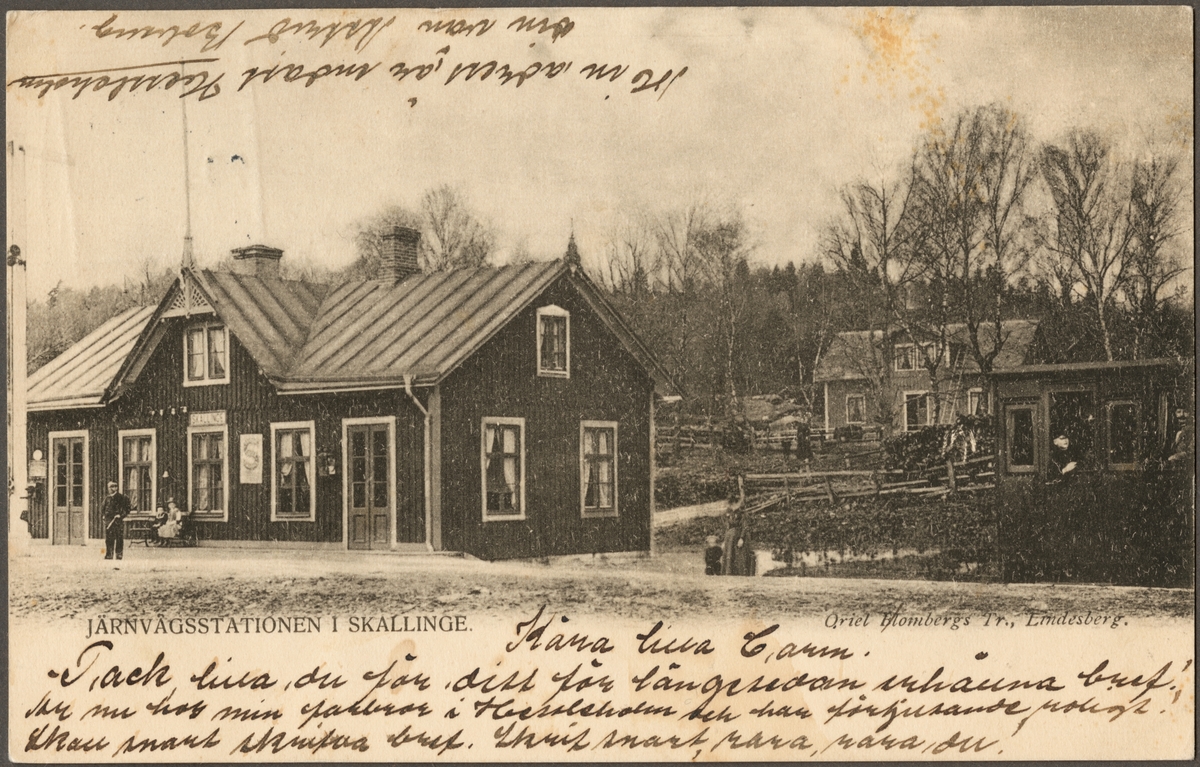 Min adress är endast Hessleholm
Din vän Astrid Boberg.
SKALLINGE
S
JÄRNVÄGSSTATIONEN I SKALLINGE.
Oriel Blombergs Tr., Lindesberg.
Kära lilla Carm.
Tack lilla du för ditt för längesedan erhållna bref.
Är nu hos min farbror i Hesselsholm och har förtjusande roligt!
Skall snart skrifva bref. Skrif snart, rara, rara, du!